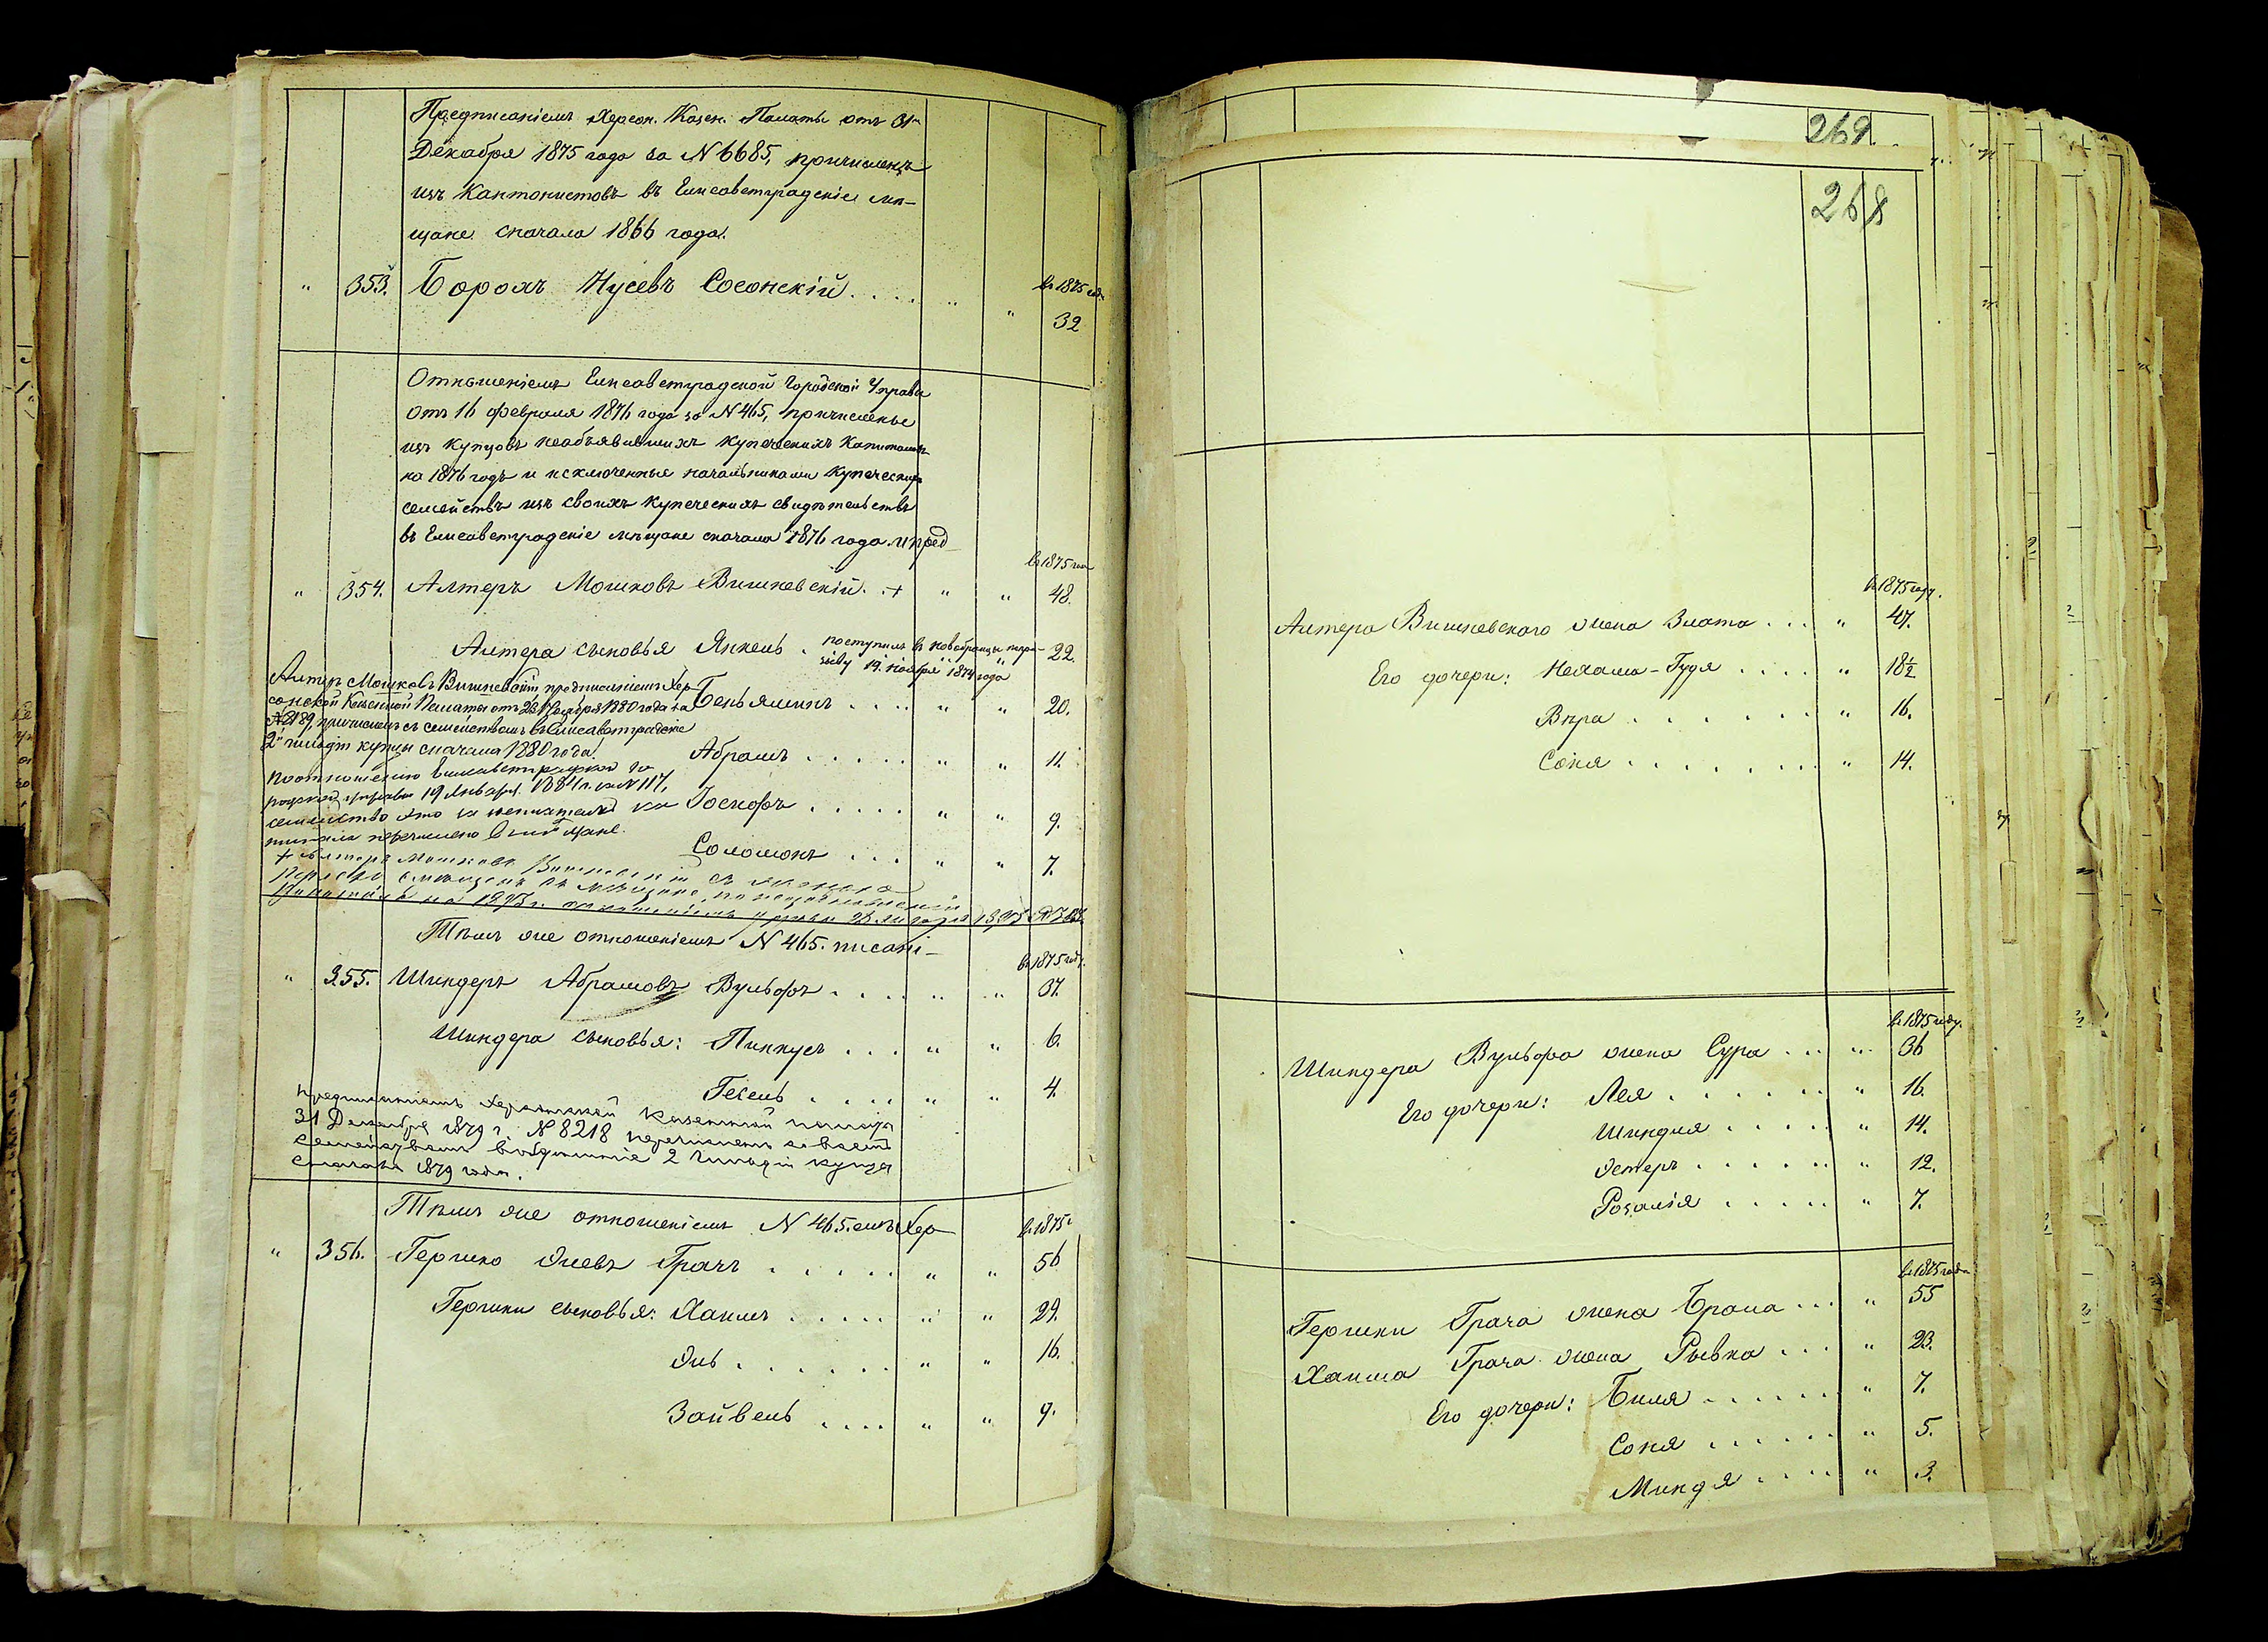 Предписаніемъ Херсон. Казен. Палаты отъ 31го
Декабря 1875 года за N 6685, причисленъ
изъ Кантонистовъ въ Елисаветградскіе мѣ-
щане сначала 1866 года.
" 353. Борохъ Нусевъ Сосонскій . . . . " " въ 1875 год.
32
Отношеніемъ Елисаветградской Городской Управы
отъ 16 февраля 1876 года за N 465, причисленные
изъ купцовъ необъявившихъ купеческихъ капиталовъ
на 1876 годъ и исключенные начальниками купеческихъ
семействъ изъ своихъ купеческихъ свидѣтельствъ
въ Елисаветградскіе мѣщане сначала 1876 года.
въ 1875 году
" 354. Алтеръ Мошковъ Вишневскій . + " " 48.
Алтера сыновья Янкель . поступилъ въ новобранцы 22.
19. ноября 1874 года
Алтеръ Мошковъ Вишневскій предписаніемъ Хер-
сонской Казенной Палаты отъ 28 1880 года за Беньяминъ . . . . " " 20.
N 2189, причисленъ съ семействомъ въ Елисаветградскіе
2й гильдіи купцы сначала 1880 года. Абрамъ . . . . . " " 11.
По отношенію Елисаветградской Го-
родской управы 19 Января 1884 г. за N 117,
семейство это за неплатежъ ка- Іоснофъ . . . . . " " 9.
питала перечислено въ мѣщане.
Соломонъ . . . " " 7.
+ Алтеръ Мошковъ Вишневскій съ
Тѣмъ же отношеніемъ N 465.
въ 1875 году.
" 355. Шиндеръ Абрамовъ Вульфъ . . . . " " 37.
Шиндера сыновья: Пинкусъ . . . " " 6.
Гесель . . . . " " 4.
Предписаніемъ Херсонской Казенной палаты
31 Декабря 1879 г. N 8218 перечисленъ со всемъ
семействомъ въ 2 гильдіи купцы
сначала 1879 года.
Тѣмъ же отношеніемъ N 465.
въ 1875 г.
" 356. Гершко Элевъ Грачъ . . . . . " " 56
Гершки сыновья: Хаимъ . . . . . " " 29.
Эль . . . . . . " " 16.
Зайвель . . . . " " 9.
269.
268
въ 1875 году.
Алтера Вишневского жена Злата . . . " 47.
Его дочери: Нехама-Гудя . . . . " 18½
Вѣра . . . . . . " 16.
Соня . . . . . . . " 14.
въ 1875 году.
Шиндера Вульфа жена Сура . . . " 36
Его дочери: Лея . . . . . . . " 16.
Шиндля . . . . . " 14.
Эстеръ . . . . . . " 12.
Розалія . . . . . " 7.
въ 1875 году
Гершки Грача жена Брана . . . " 55
Хаима Грача жена Рывка . . . " 23.
Его дочери: Биля . . . . . . " 7.
Соня . . . . . . " 5.
Миндя . . . . " 3.